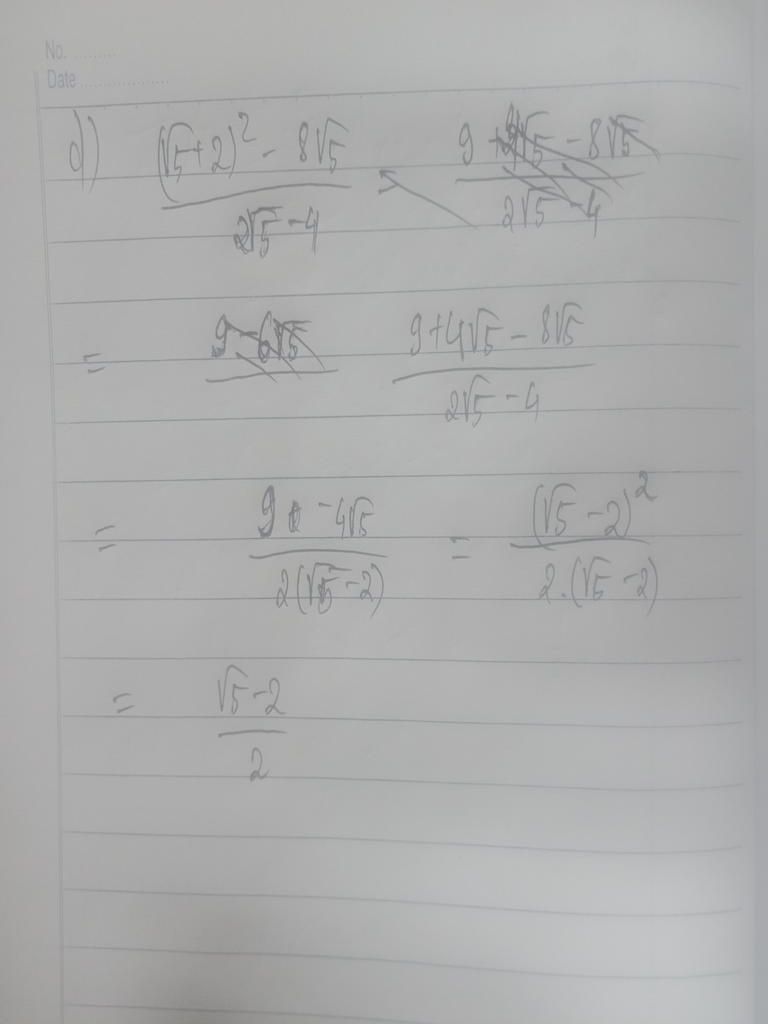 No. ..........
Date ....................
d) ((√5+2)² - 8√5)/(2√5-4)
= (9+4√5-8√5)/(2√5-4)
= (9-4√5)/(2(√5-2)) = (√5-2)²/(2.(√5-2))
= (√5-2)/2